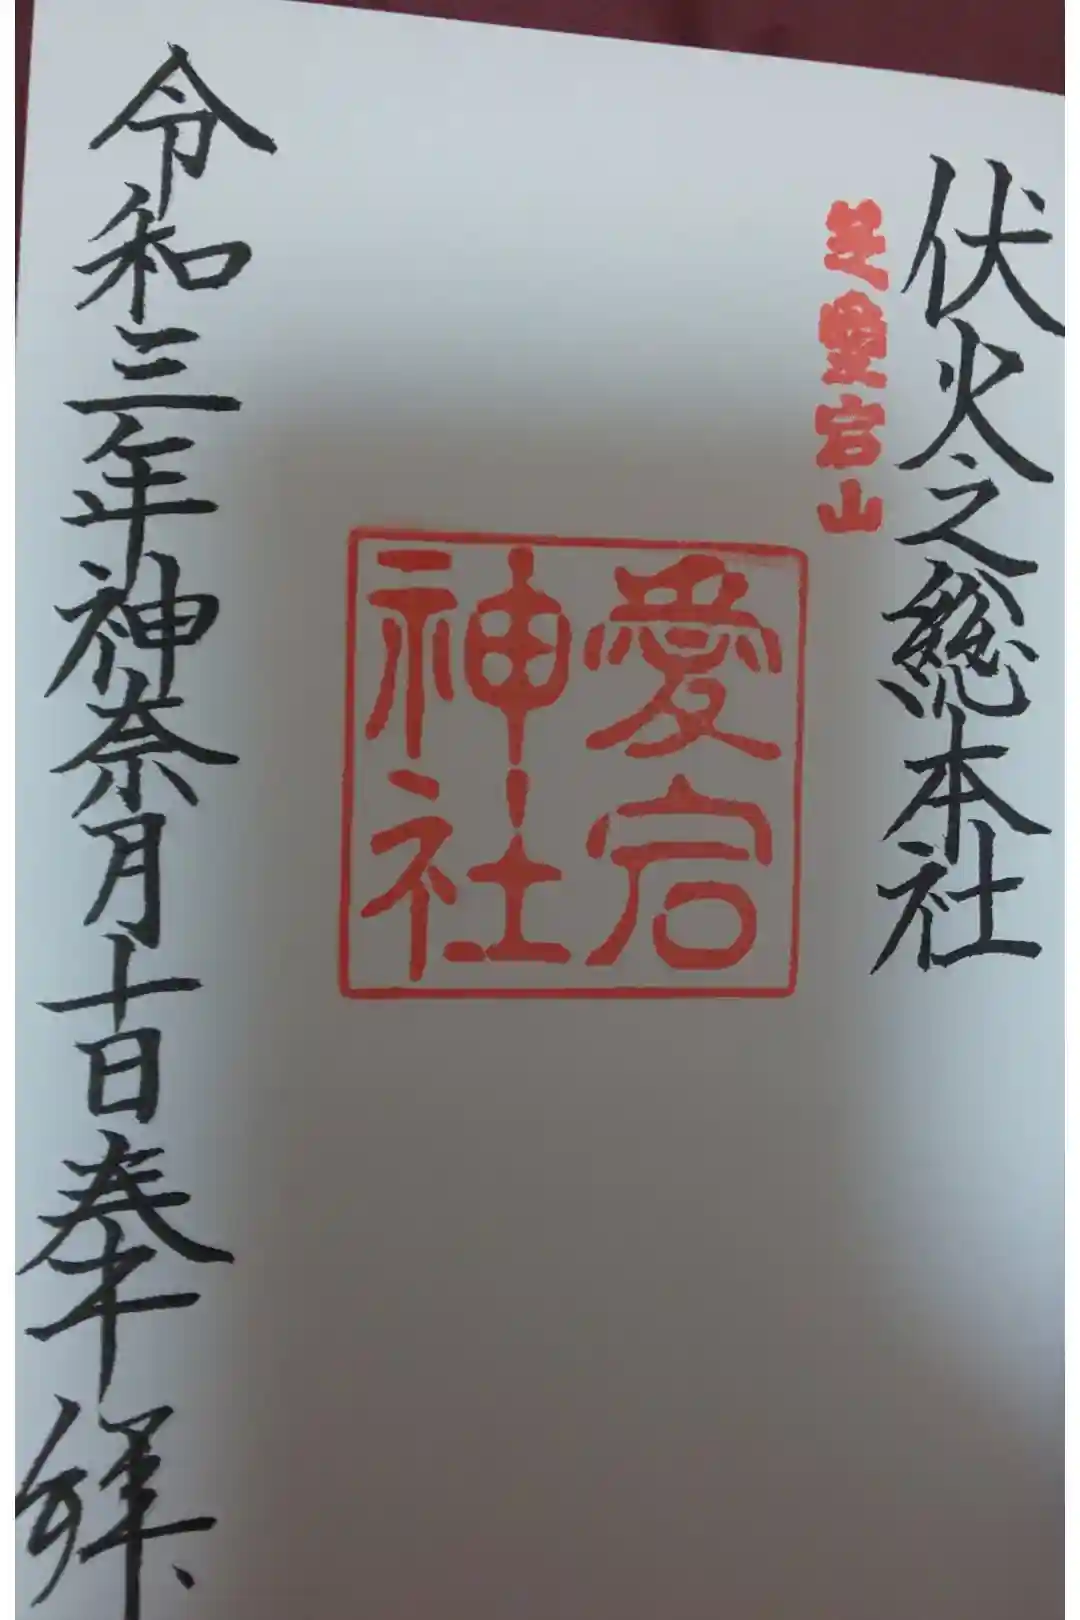 伏火之総本社
芝愛宕山
愛宕
神社
令和三年神奈月十日奉拝